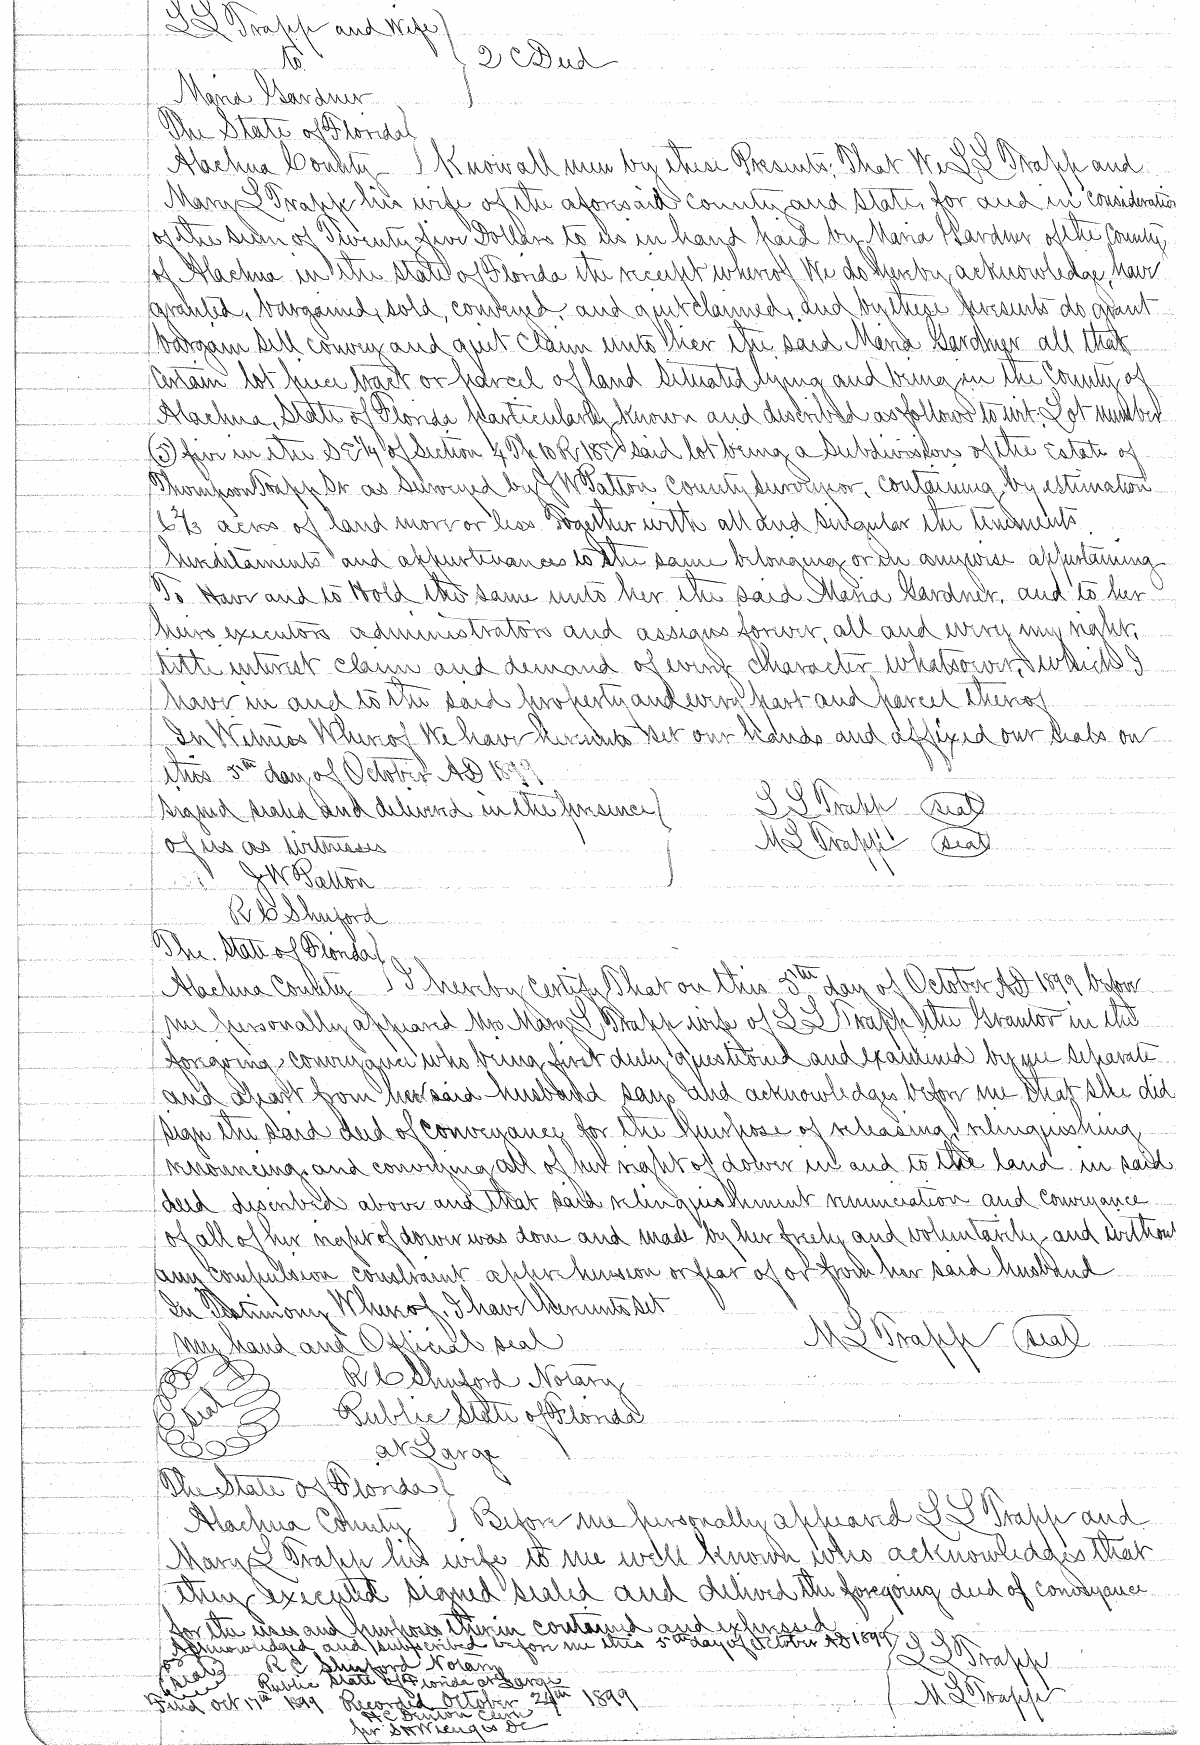 L L Trapp and Wife
to
2 C Deed
Maria Gardner
The State of Florida
Alachua County Know all men by these Presents; That We L L Trapp and
Mary L Trapp his wife of the aforesaid county and state, for and in consideration
of the sum of Twenty five Dollars to us in hand paid by Maria Gardner of the County
of Alachua in the State of Florida the receipt whereof We do hereby acknowledge, have
granted, bargained, sold, conveyed, and quit claimed, and by these presents do grant
bargain sell convey and quit claim unto her the said Maria Gardner all that
certain lot piece tract or parcel of land situated lying and being in the County of
Alachua, State of Florida particularly known and described as follows to wit: Lot number
(5) five in the SE1/4 of Section 4 Tp 10 R 18 E said lot being a subdivision of the Estate of
Thompson Trapp Sr as surveyed by J W Patton County surveyor, containing by estimation
6 2/3 acres of land more or less Together with all and singular the tenements
hereditaments and appurtenances to the same belonging or in anywise appertaining
To Have and to Hold the same unto her the said Maria Gardner, and to her
heirs executors administrators and assigns forever, all and every my right,
title interest claim and demand of every character whatsoever, which I
have in and to the said property and every part and parcel thereof
In Witness Whereof We have hereunto set our hands and affixed our seals on
this 5th day of October AD 1899
Signed sealed and delivered in the presence L L Trapp seal
of us as witnesses M L Trapp seal
J W Patton
R C Shuford
The State of Florida
Alachua County I hereby certify That on this 5th day of October AD 1899 before
me personally appeared Mrs Mary L Trapp wife of L L Trapp the Grantor in the
foregoing conveyance who being first duly questioned and examined by me separate
and apart from her said husband says and acknowledges before me that she did
sign the said deed of conveyance for the purpose of releasing, relinquishing
renouncing and conveying all of her right of dower in and to the land in said
deed described above and that said relinquishment renunciation and conveyance
of all of her right of dower was done and made by her freely and voluntarily and without
any compulsion constraint apprehension or fear of or from her said husband
In Testimony Whereof, I have hereunto set
my hand and Official seal M L Trapp seal
R C Shuford Notary
seal Public State of Florida
at Large
The State of Florida
Alachua County Before me personally appeared L L Trapp and
Mary L Trapp his wife to me well known who acknowledges that
they executed signed sealed and delived the foregoing deed of conveyance
for the uses and purposes therein contained and expressed
Acknowledged and subscribed before me this 5th day of October AD 1899 L L Trapp
seal R C Shuford Notary
Public State of Florida at Large M L Trapp
Filed Oct 17th 1899 Recorded October 24th 1899
H C Denton Clerk
per S H Wienges DC